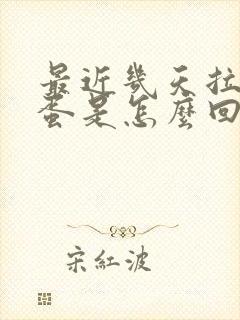 最近幾天拉
蛋是怎麼回
宋紅波